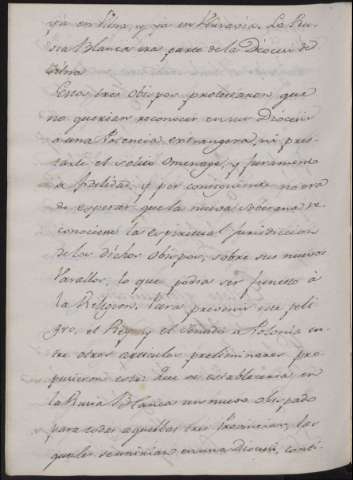 ya en Vilna, y ya en Varsavia. La Ru-
sia Blanca era parte de la Diocesi de
Vilna
Estos tres Obispos protestaron que
no querian reconocer en sus Diocesis
a una Potencia extrangera, ni pres-
tarle el solito omenage, y juramento
de fidelidad, y por consiguiente no era
de esperar, que la nueva Soberana re-
conociese la espiritual Jurisdiccion
de los dichos Obispos, sobre sus nuevos
Vasallos, lo que podia ser funesto à
la Religion. Para prevenir este peli-
gro, el Rey, y el Senado de Polonia en-
tre otros articulos preliminares pro-
pusieron este: Que se estableceria en
la Rusia Blanca un nuevo Obispado
para todas aquellas tres Provincias, las
quales se unirian en una Diocesi, conti-